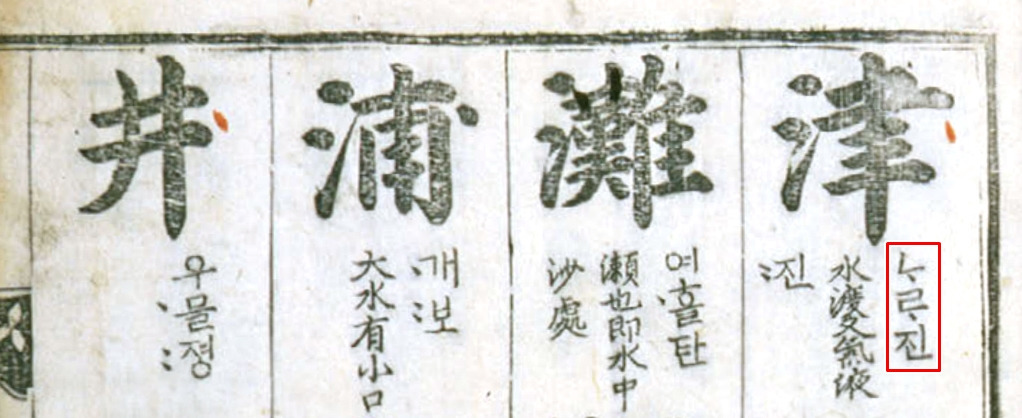 津
ᄂᆞᄅᆞ진
水渡又氣液
:진
灘
여·흘탄
瀨也即水中
沙處
浦
·개·보
大水有小口
井
우·믈:졍